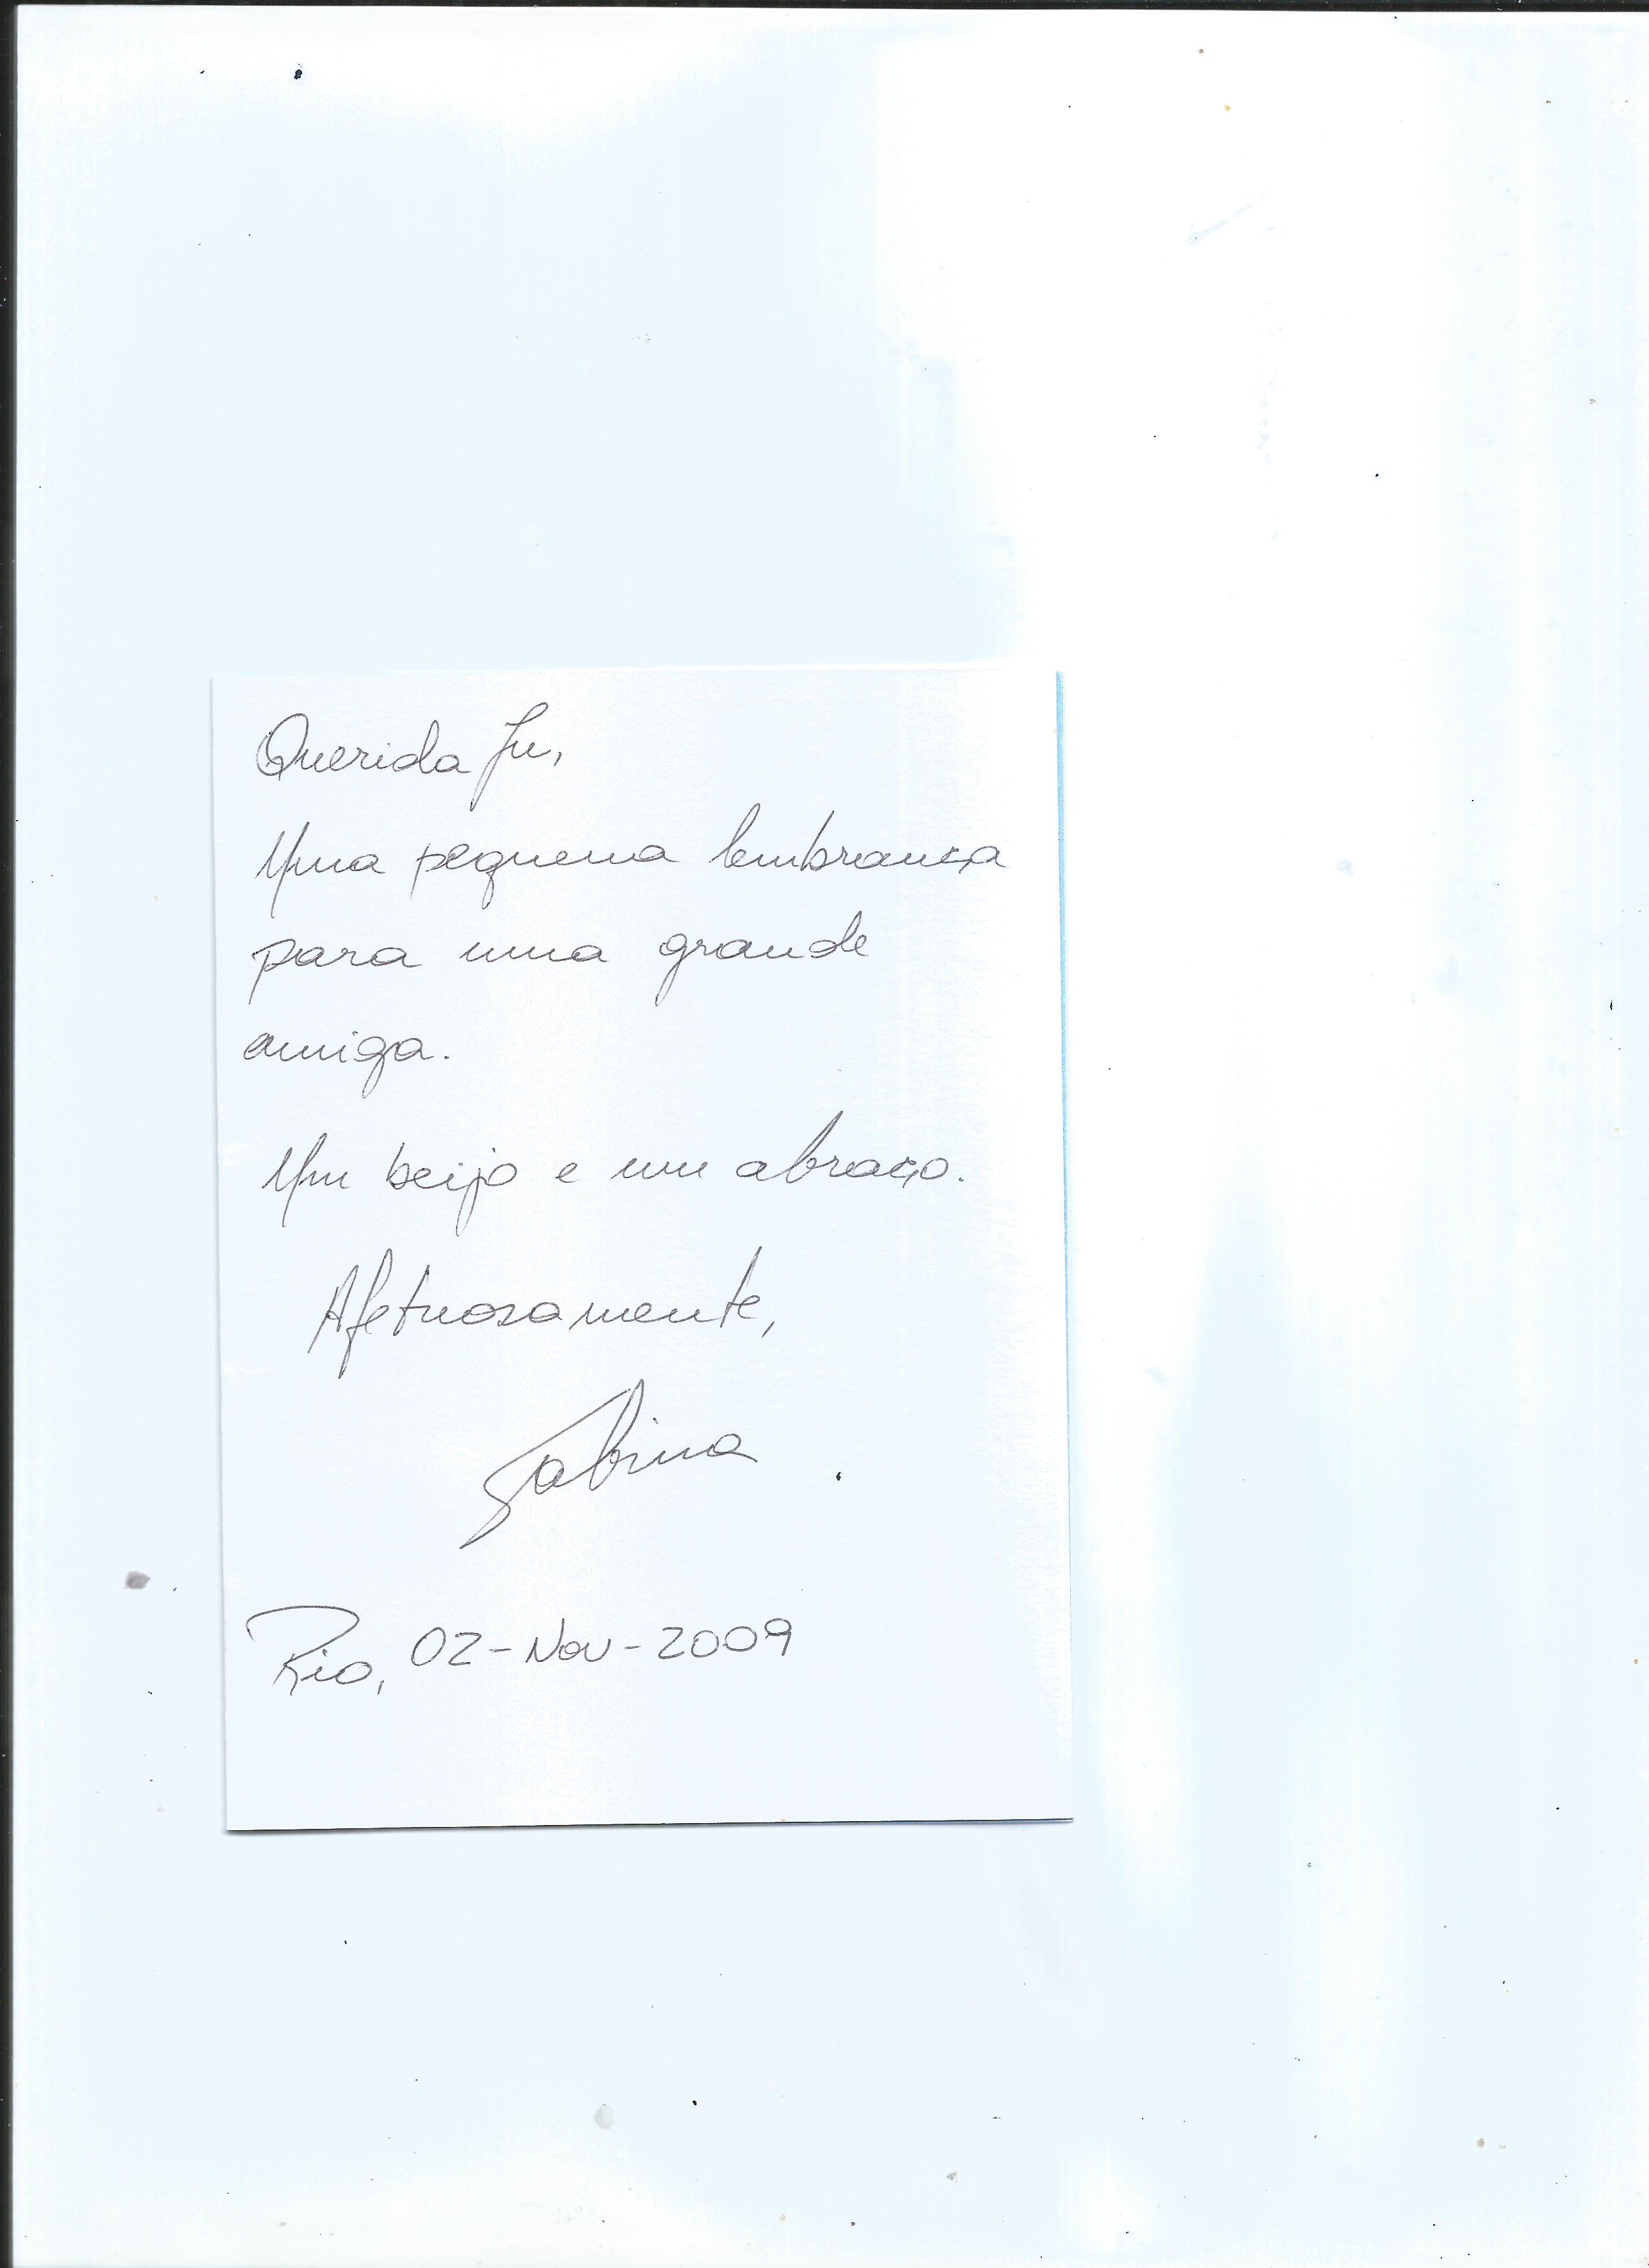 Querida Ju,
Uma pequena lembrança
para uma grande
amiga.
Um beijo e um abraço.
Afetuosamente,
Sabina
Rio, 02-Nov-2009